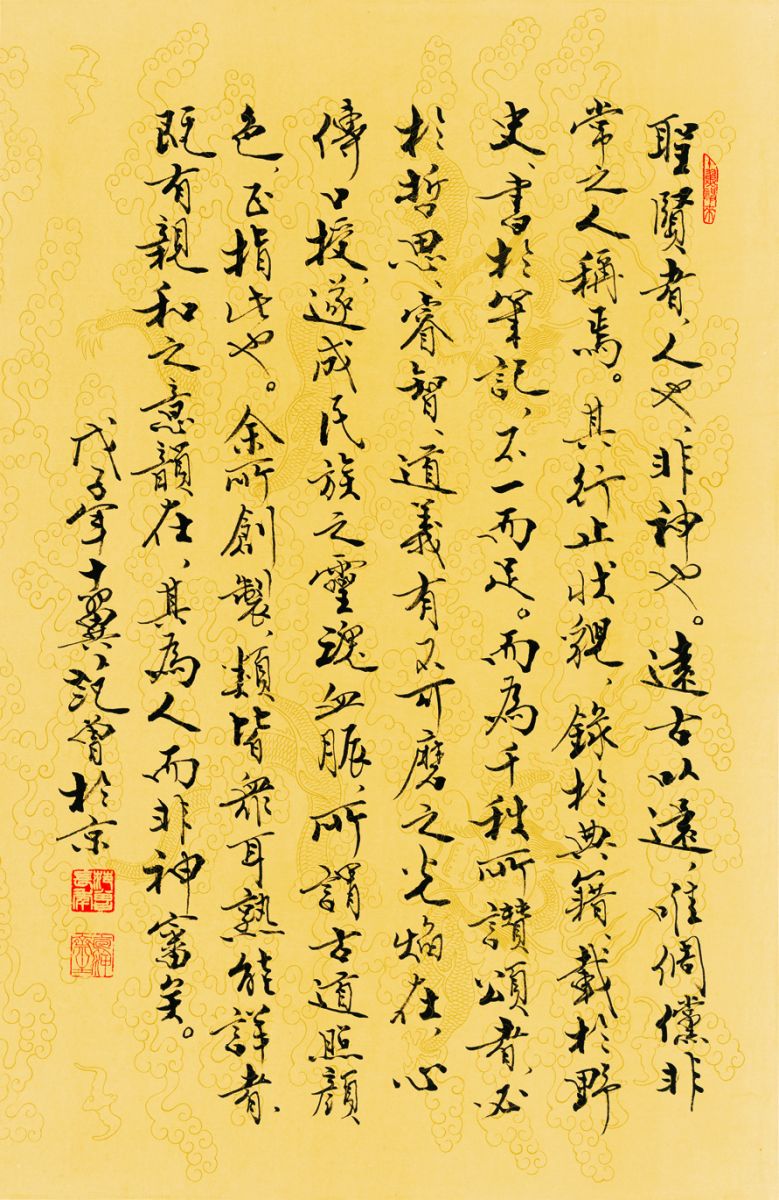 聖賢者、人也、非神也。遠古以還、唯倜儻非
常之人稱焉。其行止狀貌、錄於典籍、載於野
史、書於筆記、不一而足。而為千秋所讚頌者、必
於哲思、睿智、道義有不可磨之光焰在、心
傳口授、遂成民族之靈魂血脈、所謂古道照顏
色、正指此也。余所創製、類皆衆耳熟能詳者、
既有親和之意韻在、其為人而非神審矣。
戊子年十翼、記於京